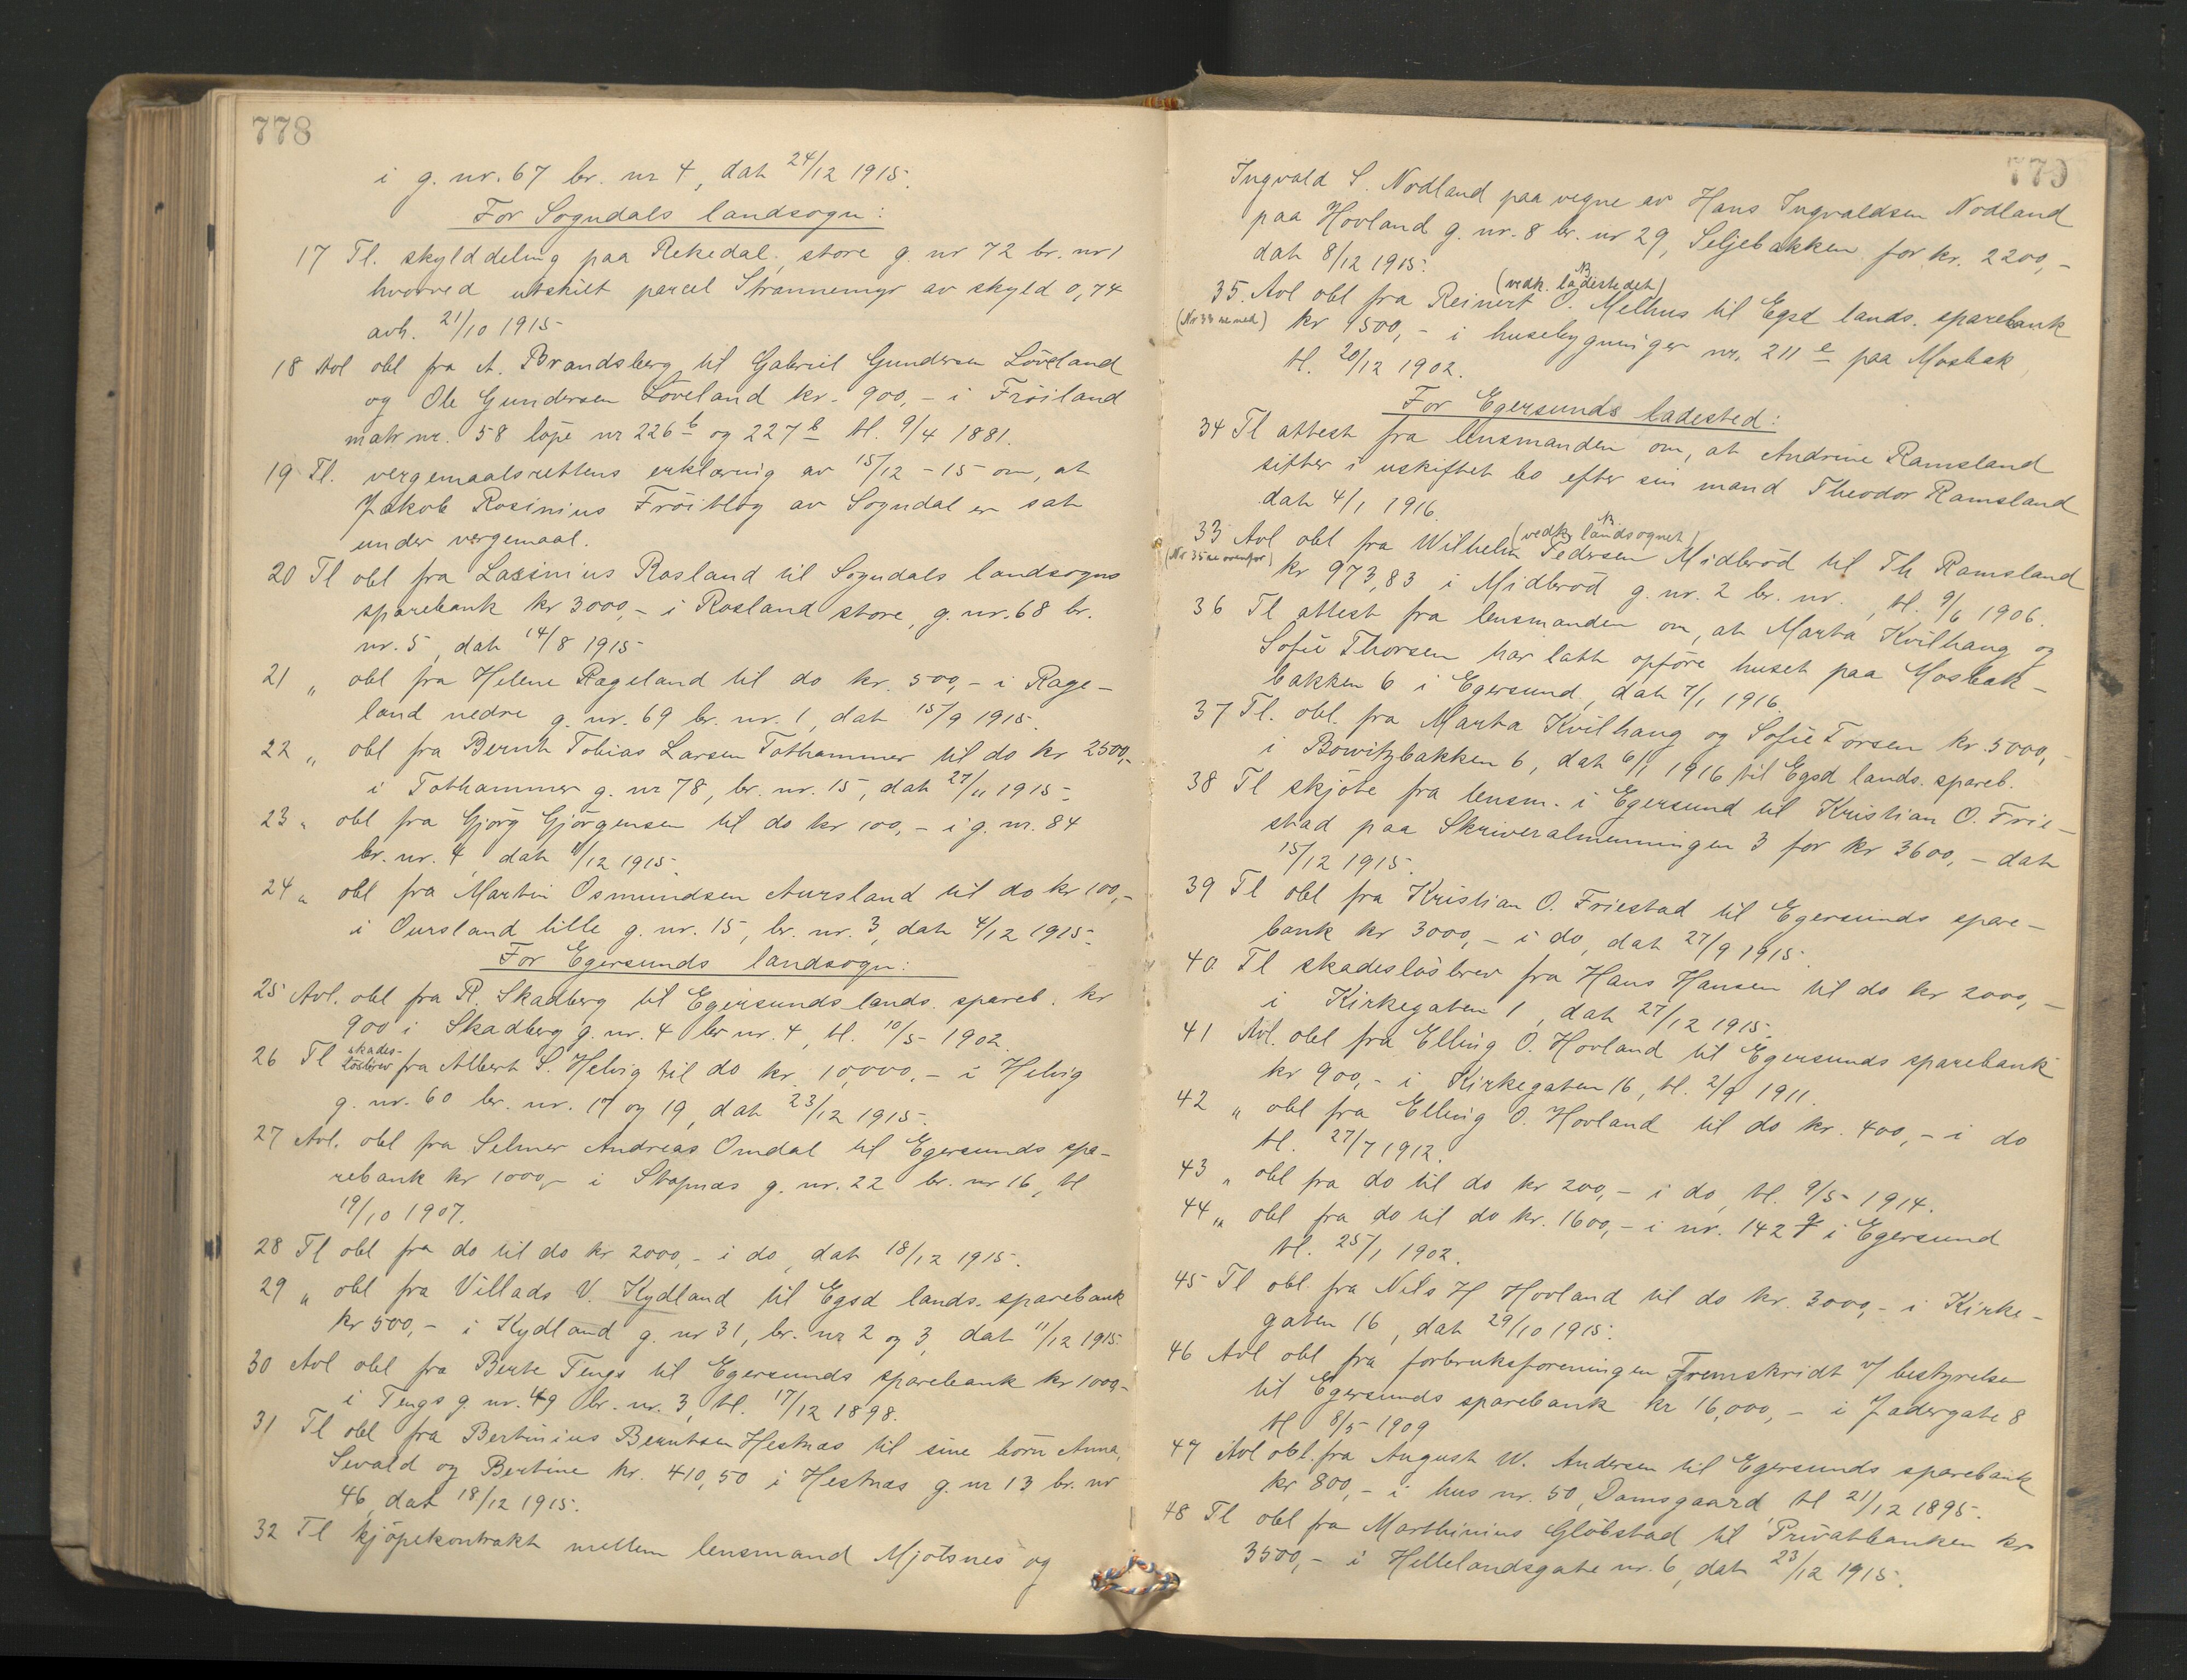 778
i g. nr. 67 br. nr 4, dat 24/12 1915.
For Sogndals landsogn:
17 Tl. skylddeling paa Rekedal, store g. nr 72 br. nr 1
hvorved utskilt parcel Strannemyr av skyld 0,74
avh. 21/10 1915
18 Avl obl fra A. Brandsberg til Gabriel Gundersen Löveland
og Ole Gundersen Löveland kr. 900,- i Fröiland
matr nr. 58 löpe nr 226 b og 227 b tl. 9/4 1881.
19 Tl. vergemaalsrettens erklæring av 15/12 - 15 om, at
Jakob Rosinius Fröitlog av Sogndal er sat
under vergemaal.
20 Tl obl fra Lasinius Rosland til Sogndals landsogns
sparebank kr 3000,- i Rosland store, g. nr. 68 br.
nr. 5, dat 14/8 1915
21 „ obl fra Helene Rageland til do kr. 500,- i Rage-
land nedre g. nr. 69 br. nr. 1, dat 15/9 1915.
22 „ obl fra Bernt Tobias Larsen Tothammer til do kr 2500,-
i Tothammer g. nr 78, br. nr. 15, dat 27/11 1915.
23 „ obl fra Gjörg Gjörgensen til do kr 100,- i g. nr. 84
br. nr. 4, dat 11/12 1915.
24 „ obl fra Martin Osmundsen Aursland til do kr 100,-
i Oursland lille g. nr. 15, br. nr. 3, dat 4/12 1915.
For Egersunds landsogn:
25 Avl. obl fra R. Skadberg til Egersunds lands. spareb. kr
900 i Skadberg g. nr. 4 br nr. 4, tl. 10/5 1902.
26 Tl skades-
löslbrev fra Albert S. Helvig til do kr. 10,000,- i Helvig
g. nr. 60 br. nr. 17 og 19, dat 23/12 1915.
27 Avl. obl fra Selmer Andreas Omdal til Egersunds spa-
rebank kr 1000,- i Stapnæs g. nr. 22 br. nr 16, tl
19/10 1907.
28 Tl obl fra do til do kr 2000,- i do, dat 18/12 1915.
29 „ obl fra Villads V. Kydland til Egsd lands. sparebank
kr 500,- i Kydland g. nr 31, br. nr 2 og 3, dat 11/12 1915.
30 Avl obl fra Berte Tengs til Egersunds sparebank kr 1000,-
i Tengs g. nr. 49 br. nr. 3, tl. 17/12 1898.
31 Tl obl fra Bertinius Berntsen Hestnæs til sine börn Anna,
Sevald og Bertine kr. 410,50 i Hestnæs g. nr 13 br. nr
46, dat 18/12 1915.
32 Tl kjöpekontrakt mellem lensmand Mjölsnes og
779
Ingvald S. Nodland paa vegne av Hans Ingvaldsen Nodland
paa Hovland g. nr. 8 br. nr 29, Seljebakken for kr. 2200,-
dat 8/12 1915.
NB
(vedk. ladestedet)
35. Avl obl fra Reinert O. Melhus til Egsd lands. sparebank
(Nr 33 se ned) kr 1500,- i husebygninger nr. 211 e paa Mosbak,
tl. 20/12 1902.
For Egersunds ladested:
34 Tl attest fra lensmanden om, at Andrine Ramsland
sitter i uskiftet bo efter sin mand Theodor Ramsland
dat 4/1 1916.
NB
(vedk. landsognet)
33 Avl obl fra Wilhelm Pedersen Midbröd til Th Ramsland
(Nr 35 se ovenfor) kr 973,83 i Midbröd g. nr. 2 br. nr. , tl. 9/6 1906.
36 Tl attest fra lensmanden om, at Marta Kvilhaug og
Sofie Thorsen har latt opföre huset paa Mosbak-
bakken 6 i Egersund, dat 7/1 1916.
37 Tl. obl. fra Marta Kvilhaug og Sofie Torsen kr. 5000,-
i Bowitzbakken 6, dat 6/1 1916 til Egsd lands. spareb.
38 Tl skjöte fra lensm. i Egersund til Kristian O. Frie-
stad paa Skriveralmenningen 3 for kr 3600,- dat
15/12 1915.
39 Tl obl fra Kristian O. Friestad til Egersunds spare-
bank kr 3000,- i do, dat 27/9 1915.
40 Tl skadeslösbrev fra Hans Hansen til do kr 2000,-
i Kirkegaten 1, dat 27/12 1915.
41 Avl. obl fra Elling O. Hovland til Egersunds sparebank
kr 900,- i Kirkegaten 16, tl. 2/9 1911.
42 „ obl fra Elling O. Hovland til do kr. 400,- i do
tl. 27/7 1912.
43 „ obl fra do til do kr 200,- i do, tl. 9/5 1914.
44 „ obl fra do til do kr. 1600,- i nr. 142 g i Egersund
tl. 25/1 1902.
45 Tl obl. fra Nils H Hovland til do kr. 3000,- i Kirke-
gaten 16, dat 29/10 1915.
46 Avl obl fra forbruksforeningen Fremskridt v/ bestyrelse
til Egersunds sparebank kr 16,000,- i Jadergate 8
tl 8/5 1909
47 Avl obl. fra August W. Andersen til Egersunds sparebank
kr 800,- i hus nr. 50, Damsgaard tl 21/12 1895.
48 Tl obl fra Marthinius Glöbstad til Privatbanken kr
3500,- i Hellelandsgate nr. 6, dat 23/12 1915.